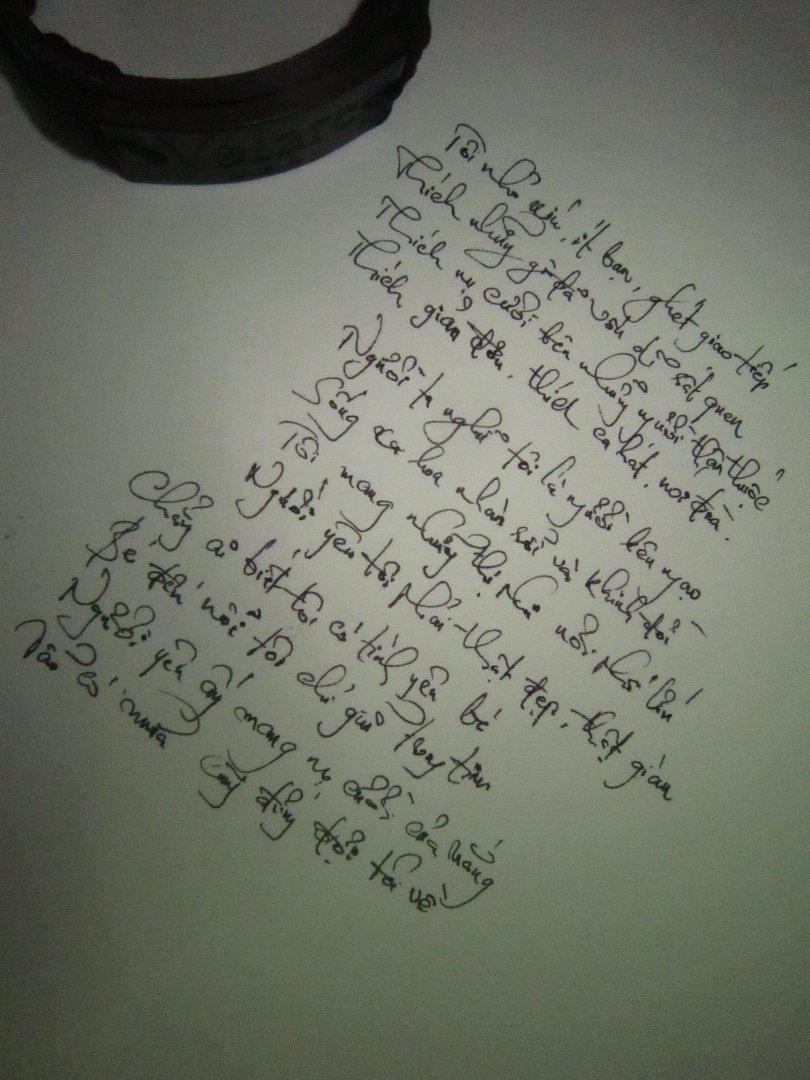 Velares
Tôi nhỏ xíu, ít bạn, ghét giao tiếp
Thích những gì đã vốn dĩ rất quen
Thích nụ cười bên những người thân thuộc
Thích giản đơn, thích ca hát, vui đùa.
Người ta nghĩ tôi là người kêu ngạo
Sống xa hoa nhàn rỗi và khinh đời
Tôi mang những nỗi
Người yêu tôi phải thật đẹp, thật giàu
Chẳng ai biết tôi có tình yêu bé
Bé đến nỗi tôi chỉ giữ trong tim
Người yêu ấy mang nụ cười của nắng
Dẫu có mưa cũng đứng đợi tôi về